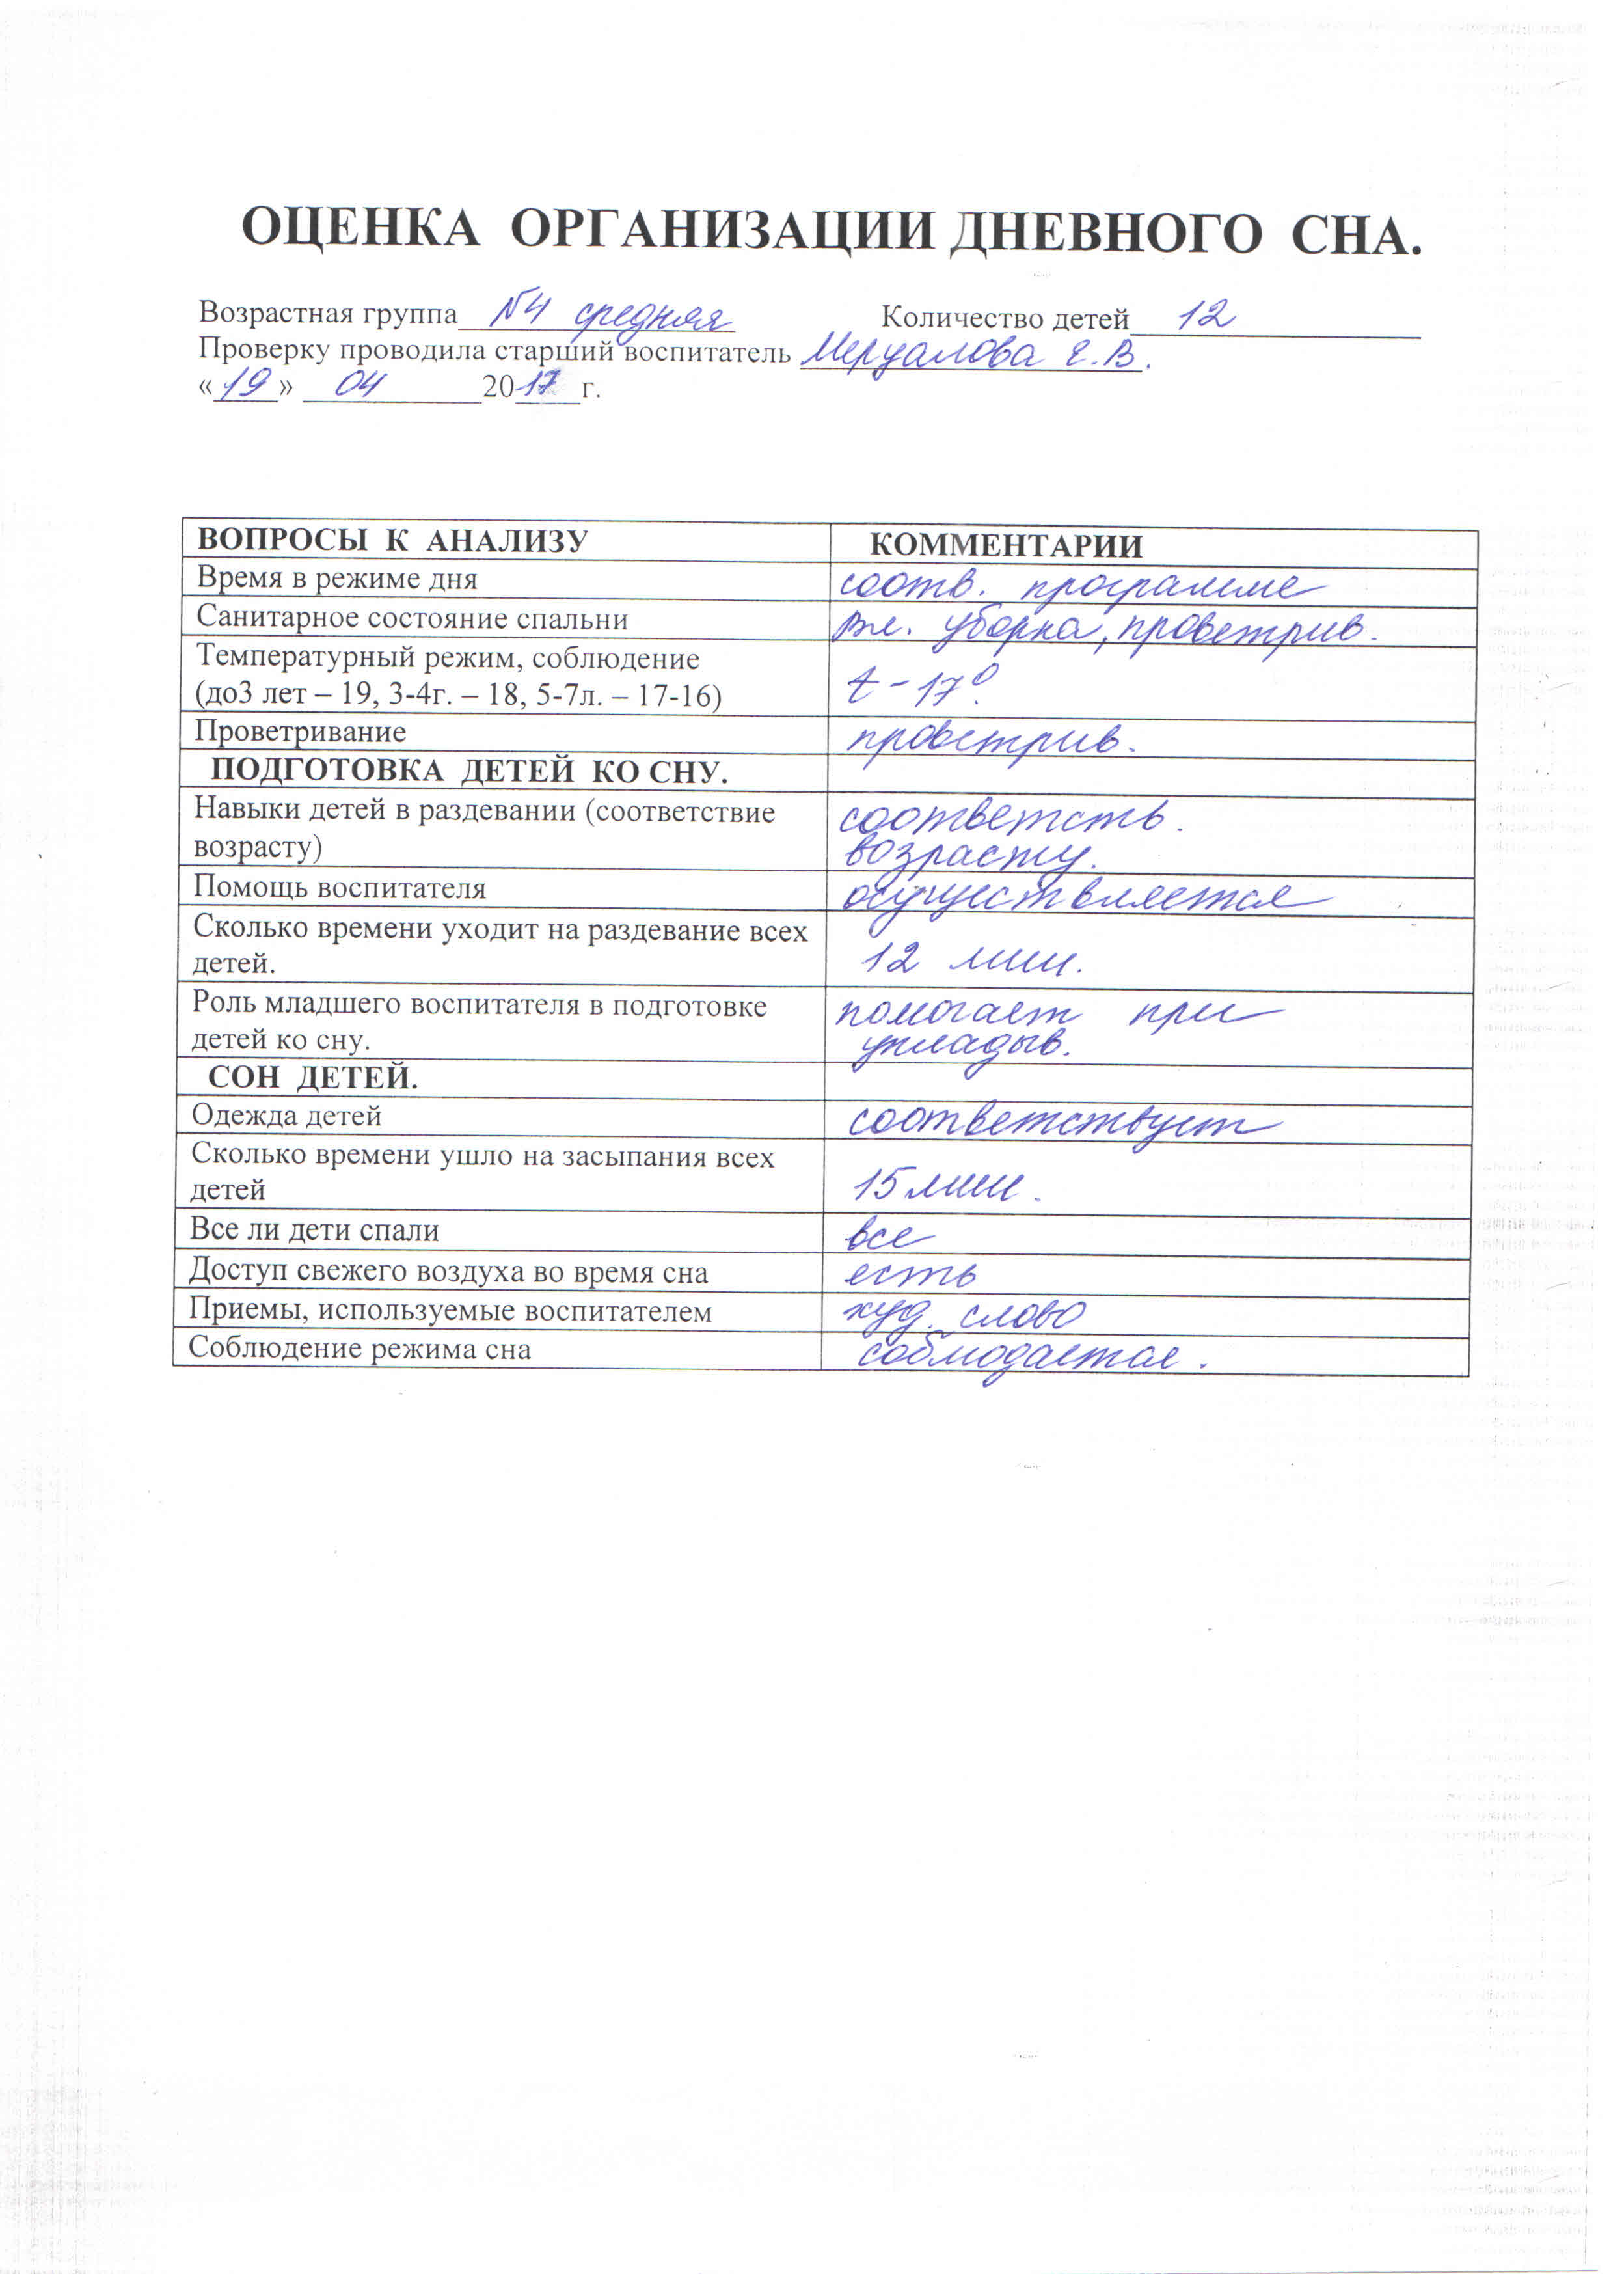 ОЦЕНКА ОРГАНИЗАЦИИ ДНЕВНОГО СНА.
Возрастная группа №4 средняя Количество детей 12
Проверку проводила старший воспитатель Меруалова Е.В.
«19» 04 2017 г.
ВОПРОСЫ К АНАЛИЗУ КОММЕНТАРИИ
Время в режиме дня соотв. программе
Санитарное состояние спальни вл. уборка, проветрив.
Температурный режим, соблюдение
(до3 лет – 19, 3-4г. – 18, 5-7л. – 17-16) t - 17°.
Проветривание проветрив.
ПОДГОТОВКА ДЕТЕЙ КО СНУ.
Навыки детей в раздевании (соответствие соответств.
возрасту) возрасту.
Помощь воспитателя осуществляется
Сколько времени уходит на раздевание всех
детей. 12 мин.
Роль младшего воспитателя в подготовке помогает при
детей ко сну. укладыв.
СОН ДЕТЕЙ.
Одежда детей соответствует
Сколько времени ушло на засыпания всех
детей 15 мин.
Все ли дети спали все
Доступ свежего воздуха во время сна есть
Приемы, используемые воспитателем худ. слово
Соблюдение режима сна соблюдается.